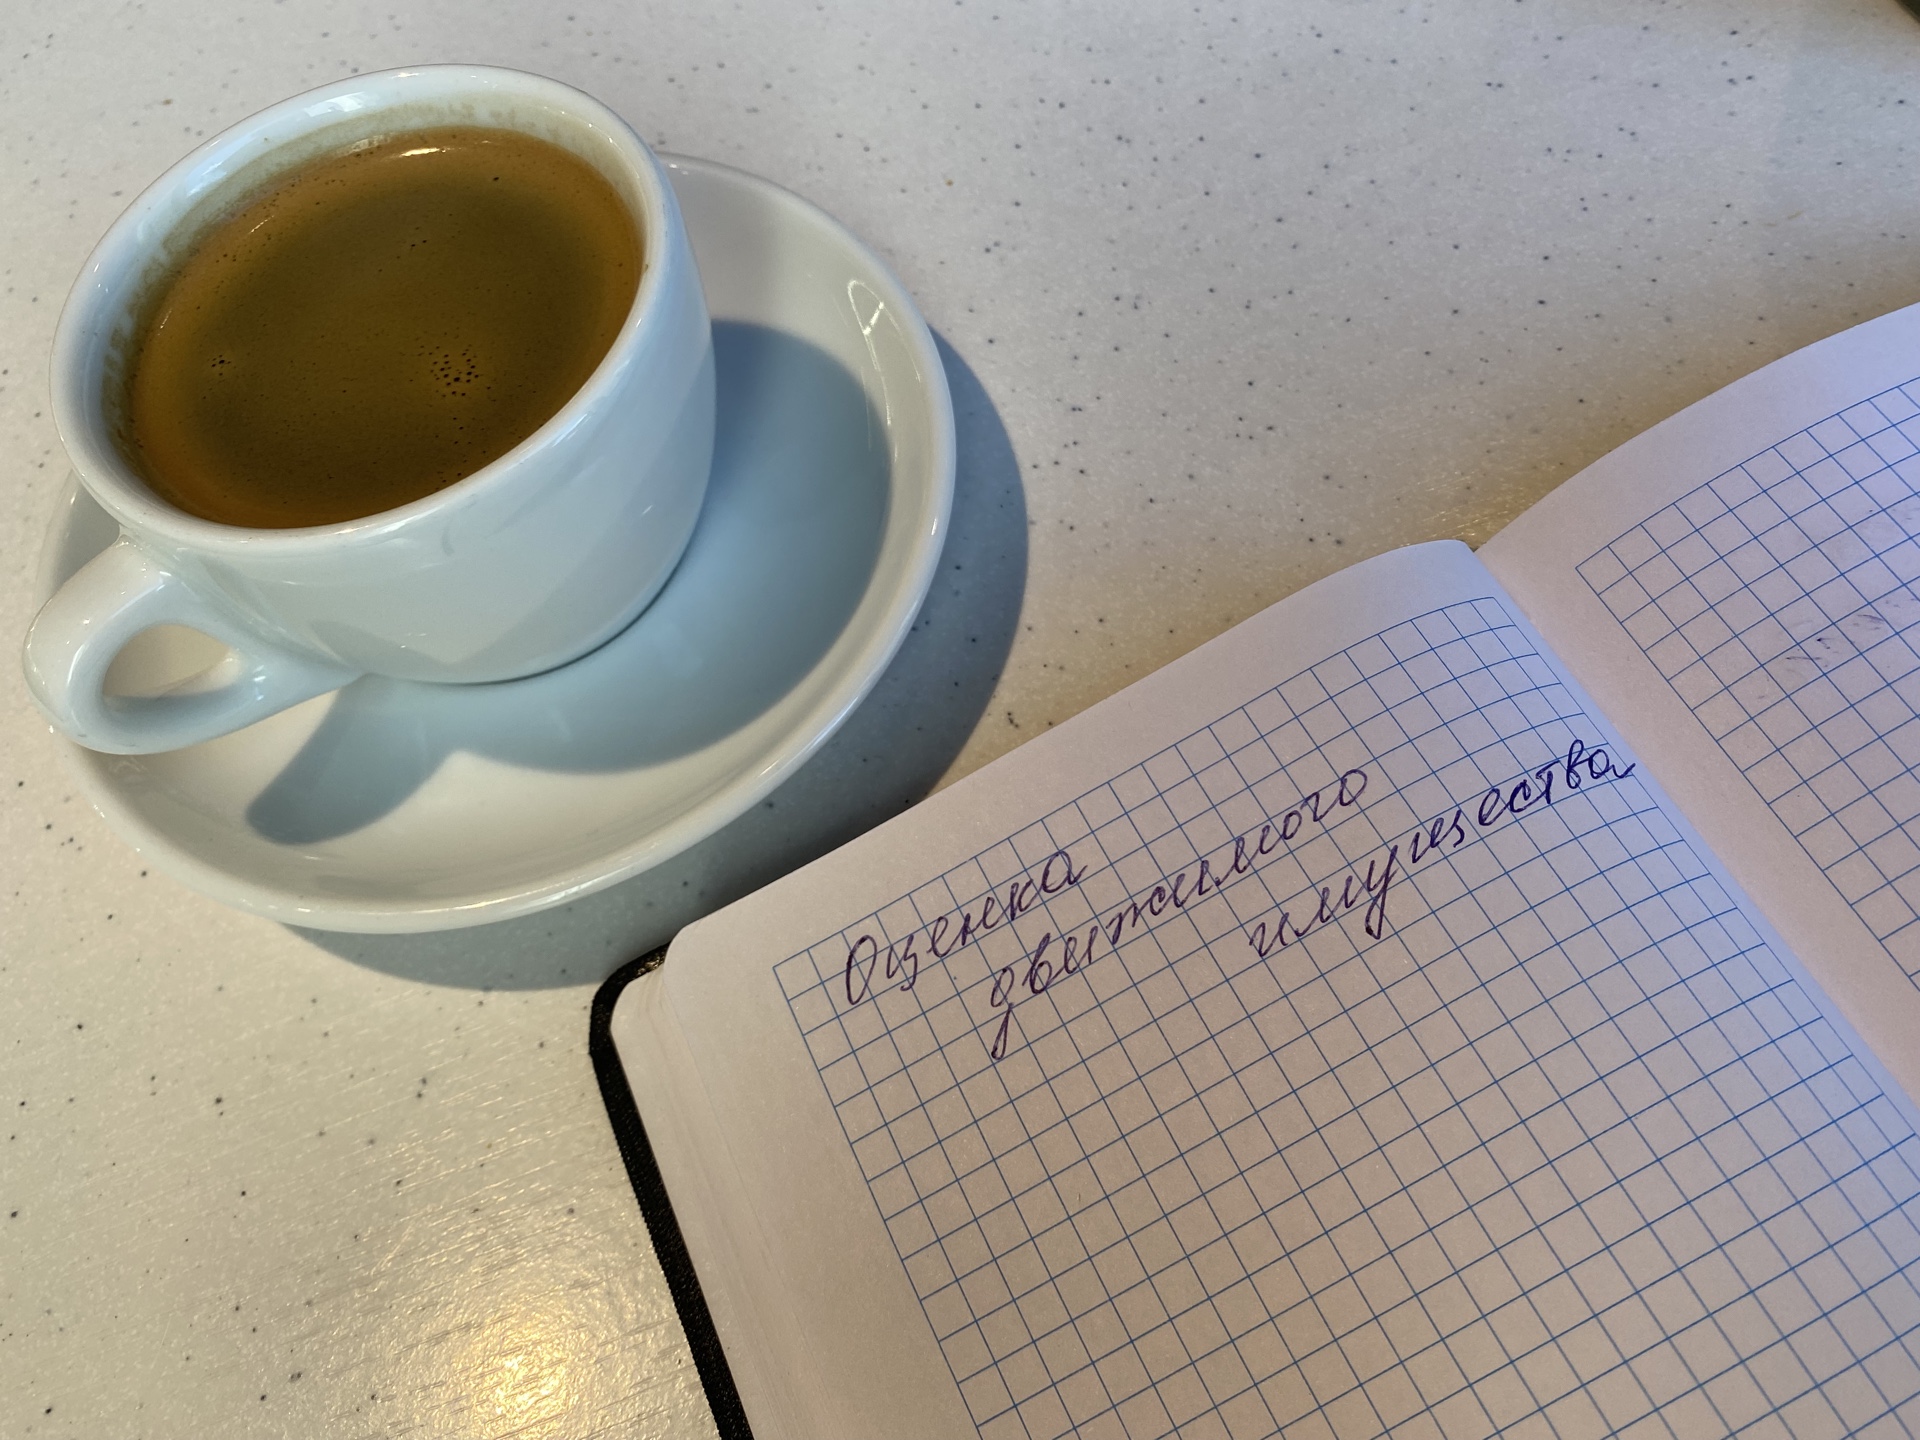 Оценка
движимого
имущества